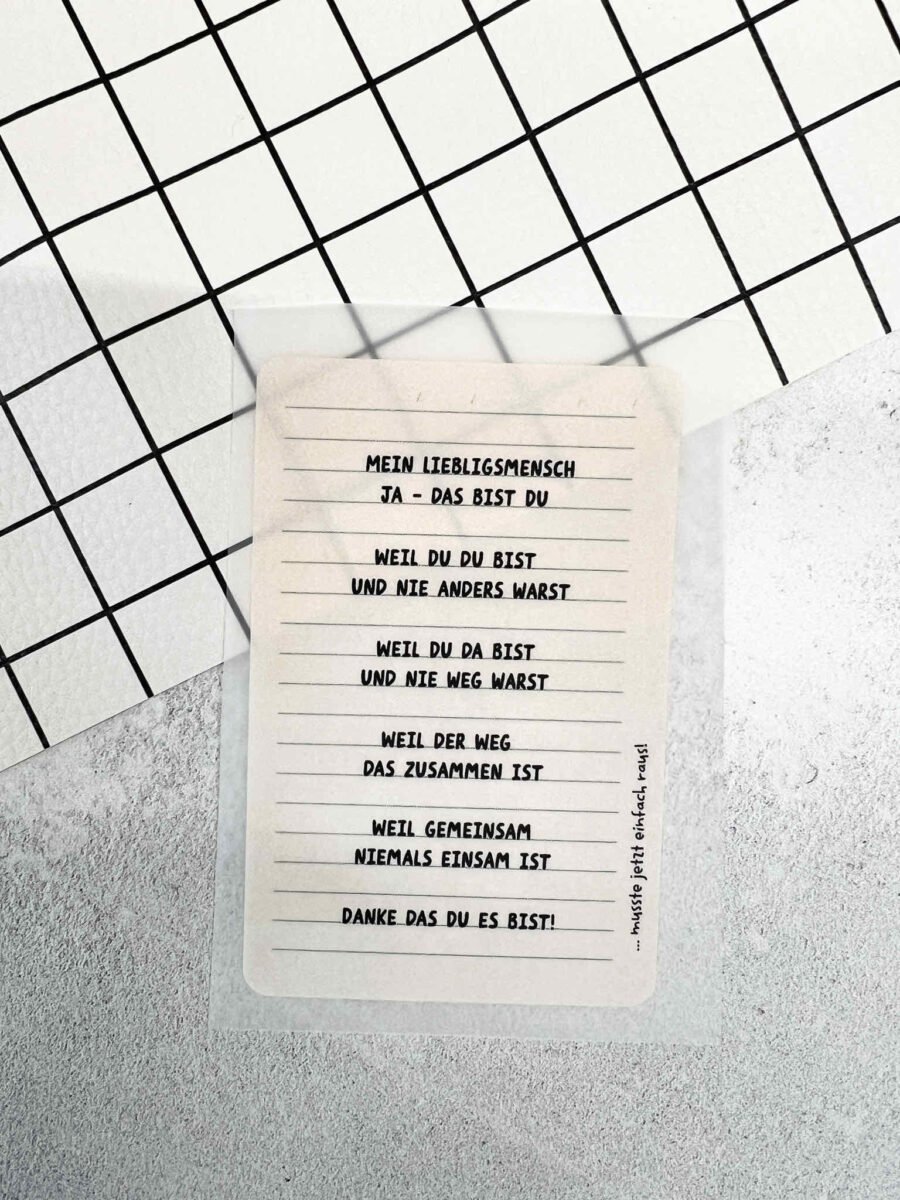 MEIN LIEBLIGSMENSCH
JA - DAS BIST DU
WEIL DU DU BIST
UND NIE ANDERS WARST
WEIL DU DA BIST
UND NIE WEG WARST
WEIL DER WEG
DAS ZUSAMMEN IST
WEIL GEMEINSAM
NIEMALS EINSAM IST
DANKE DAS DU ES BIST!
... musste jetzt einfach raus!